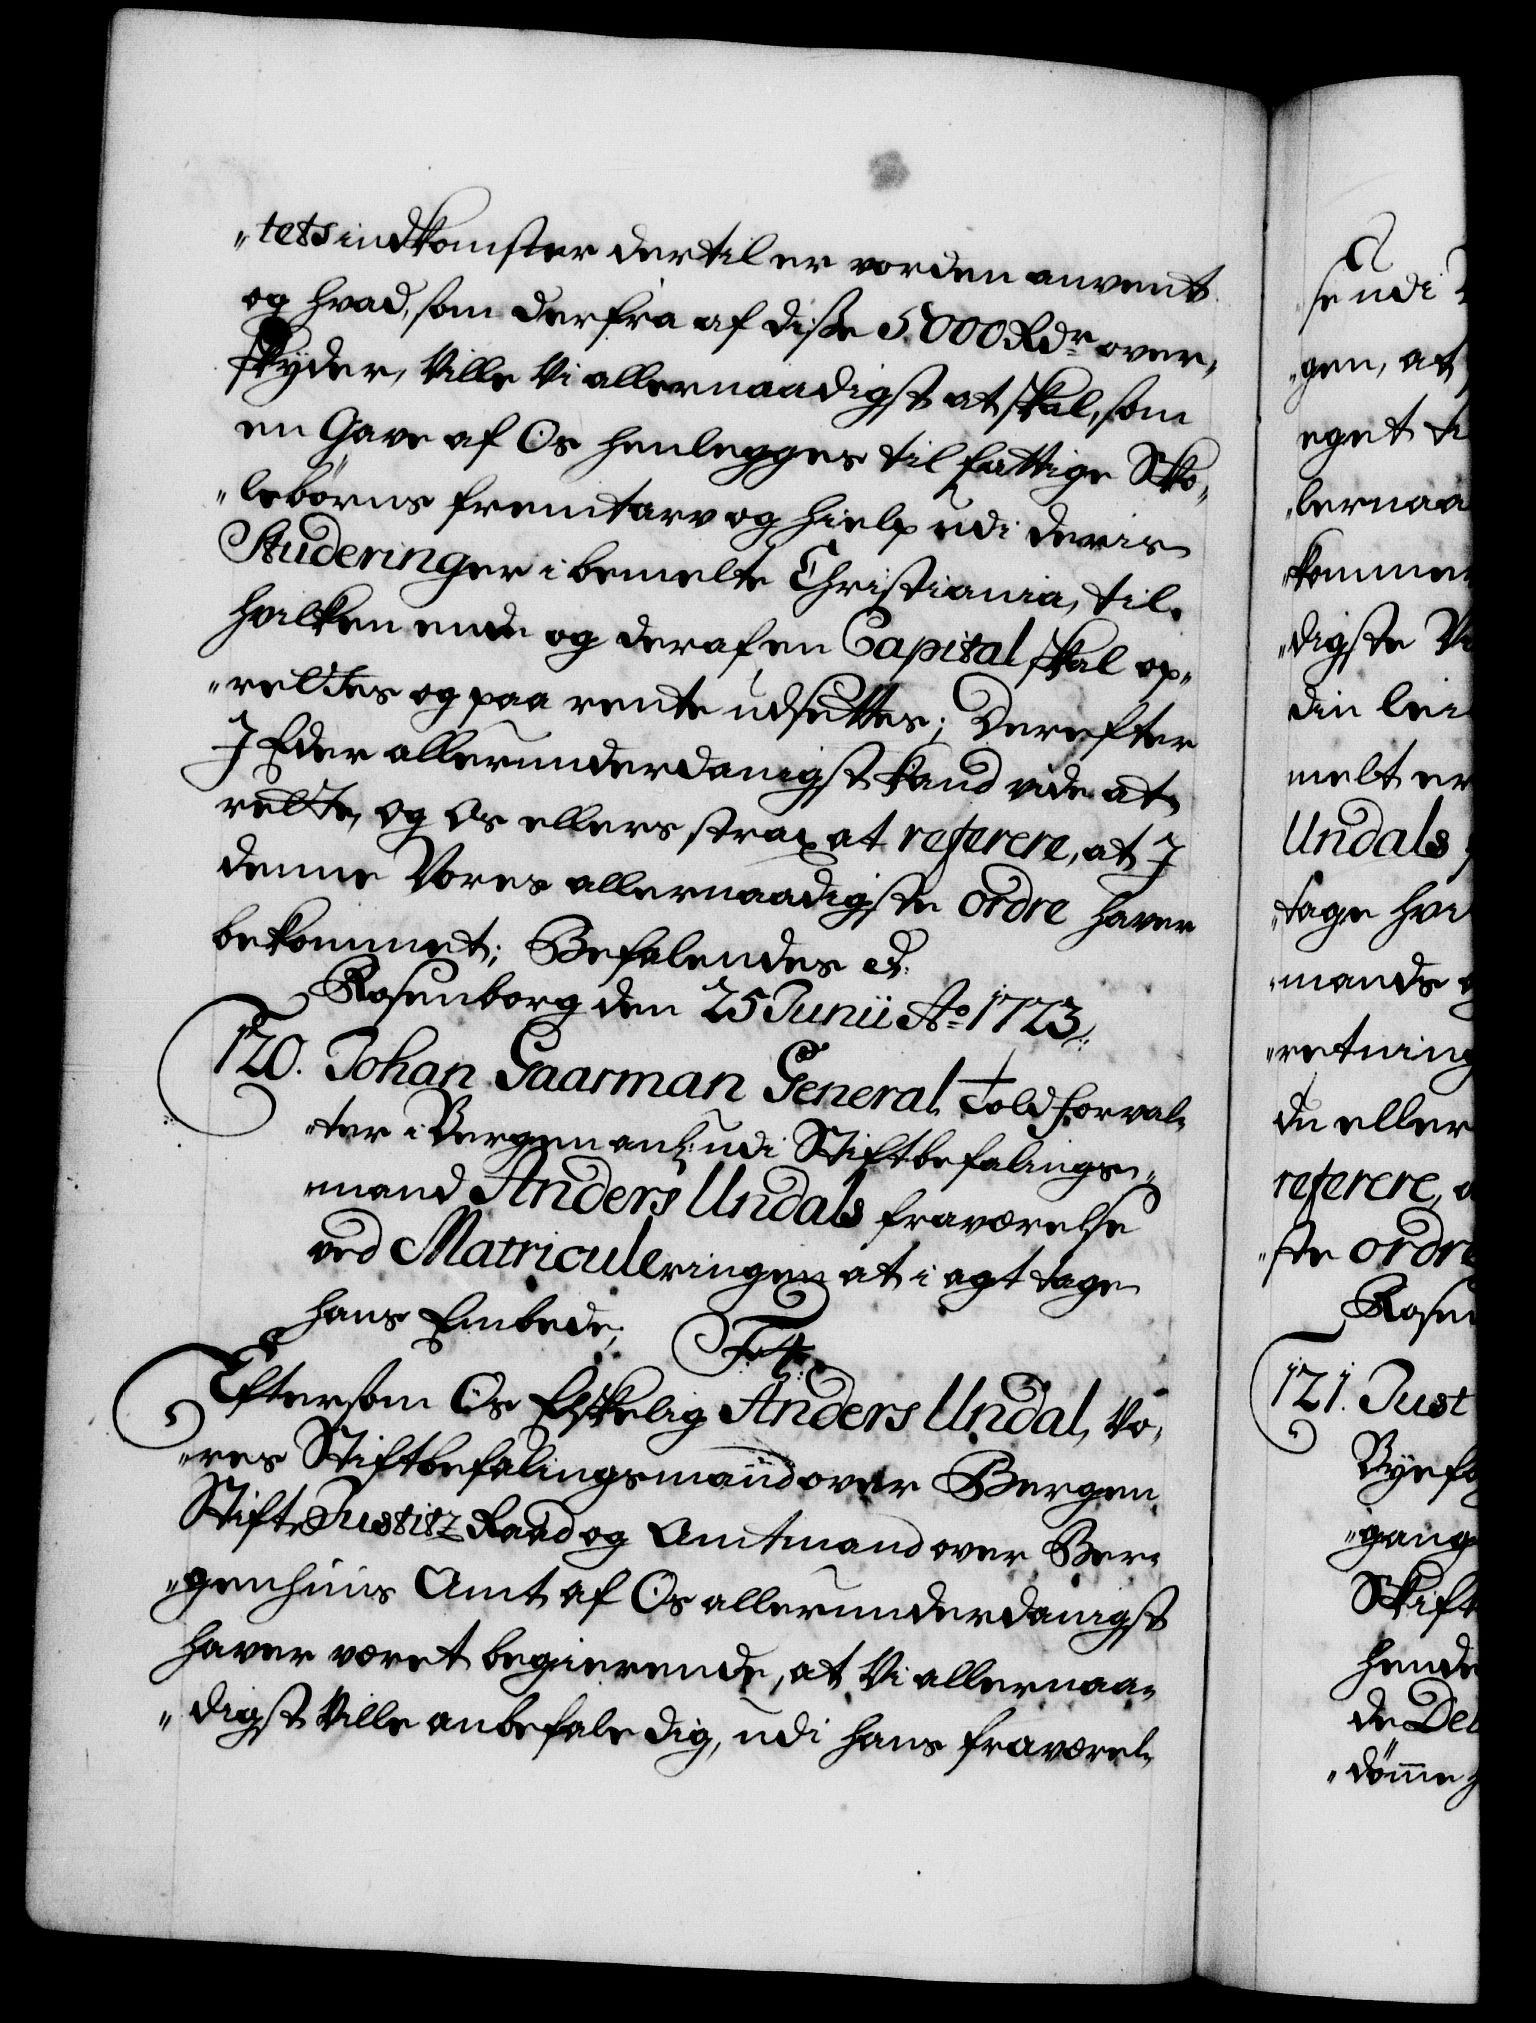 "tets indkomster dertil er vorden anvent
og hvad, som derfra af diße 5000 Rdr over,
skyder, Ville Vi allernaadigst at skal, som
en Gave af Os henlegges til fattige Sko,
"lebörns fremtarv og hielp udi deris
Studeringer i bemelte Christiania, til,
hvilken ende og deraf en Capital skal op,
"rettes og paa rente udsettes; Derefter
I Eder allerunderdanigst kand vide at
rette, og Os ellers strax at referere, at I
denne Vores allernaadigste ordre haver
bekommet; Befalendes &.
Rosenborg den 25 Junii Ao 1723.
120. Johan Gaarman General Toldforval,
"ter i Bergen anl: udi Stiftbefalings,
"mand Anders Undals fraværelse
ved Matriculeringen at i agt tage
hans Embede; F4.
Eftersom Os Elskelig Anders Undal, Vo,
"res Stiftbefalingsmand over Bergen
Stift, Justitz Raad og Amtmand over Ber,
"genhuus Amt af Os allerunderdanigst
haver været begierende, at Vi allernaa,
"digst Ville anbefale dig, udi hans fraværel,
se udi
"gen, at
eget ti
"lernaa
"komme
"digste Vi
din lei
melt er
Undals
"tage hvi
"mands
"retning
du eller
referere,
"ste ordre
Rosen
121. Just
Byefo
"gang
Skift
hende
de Del
"dömme